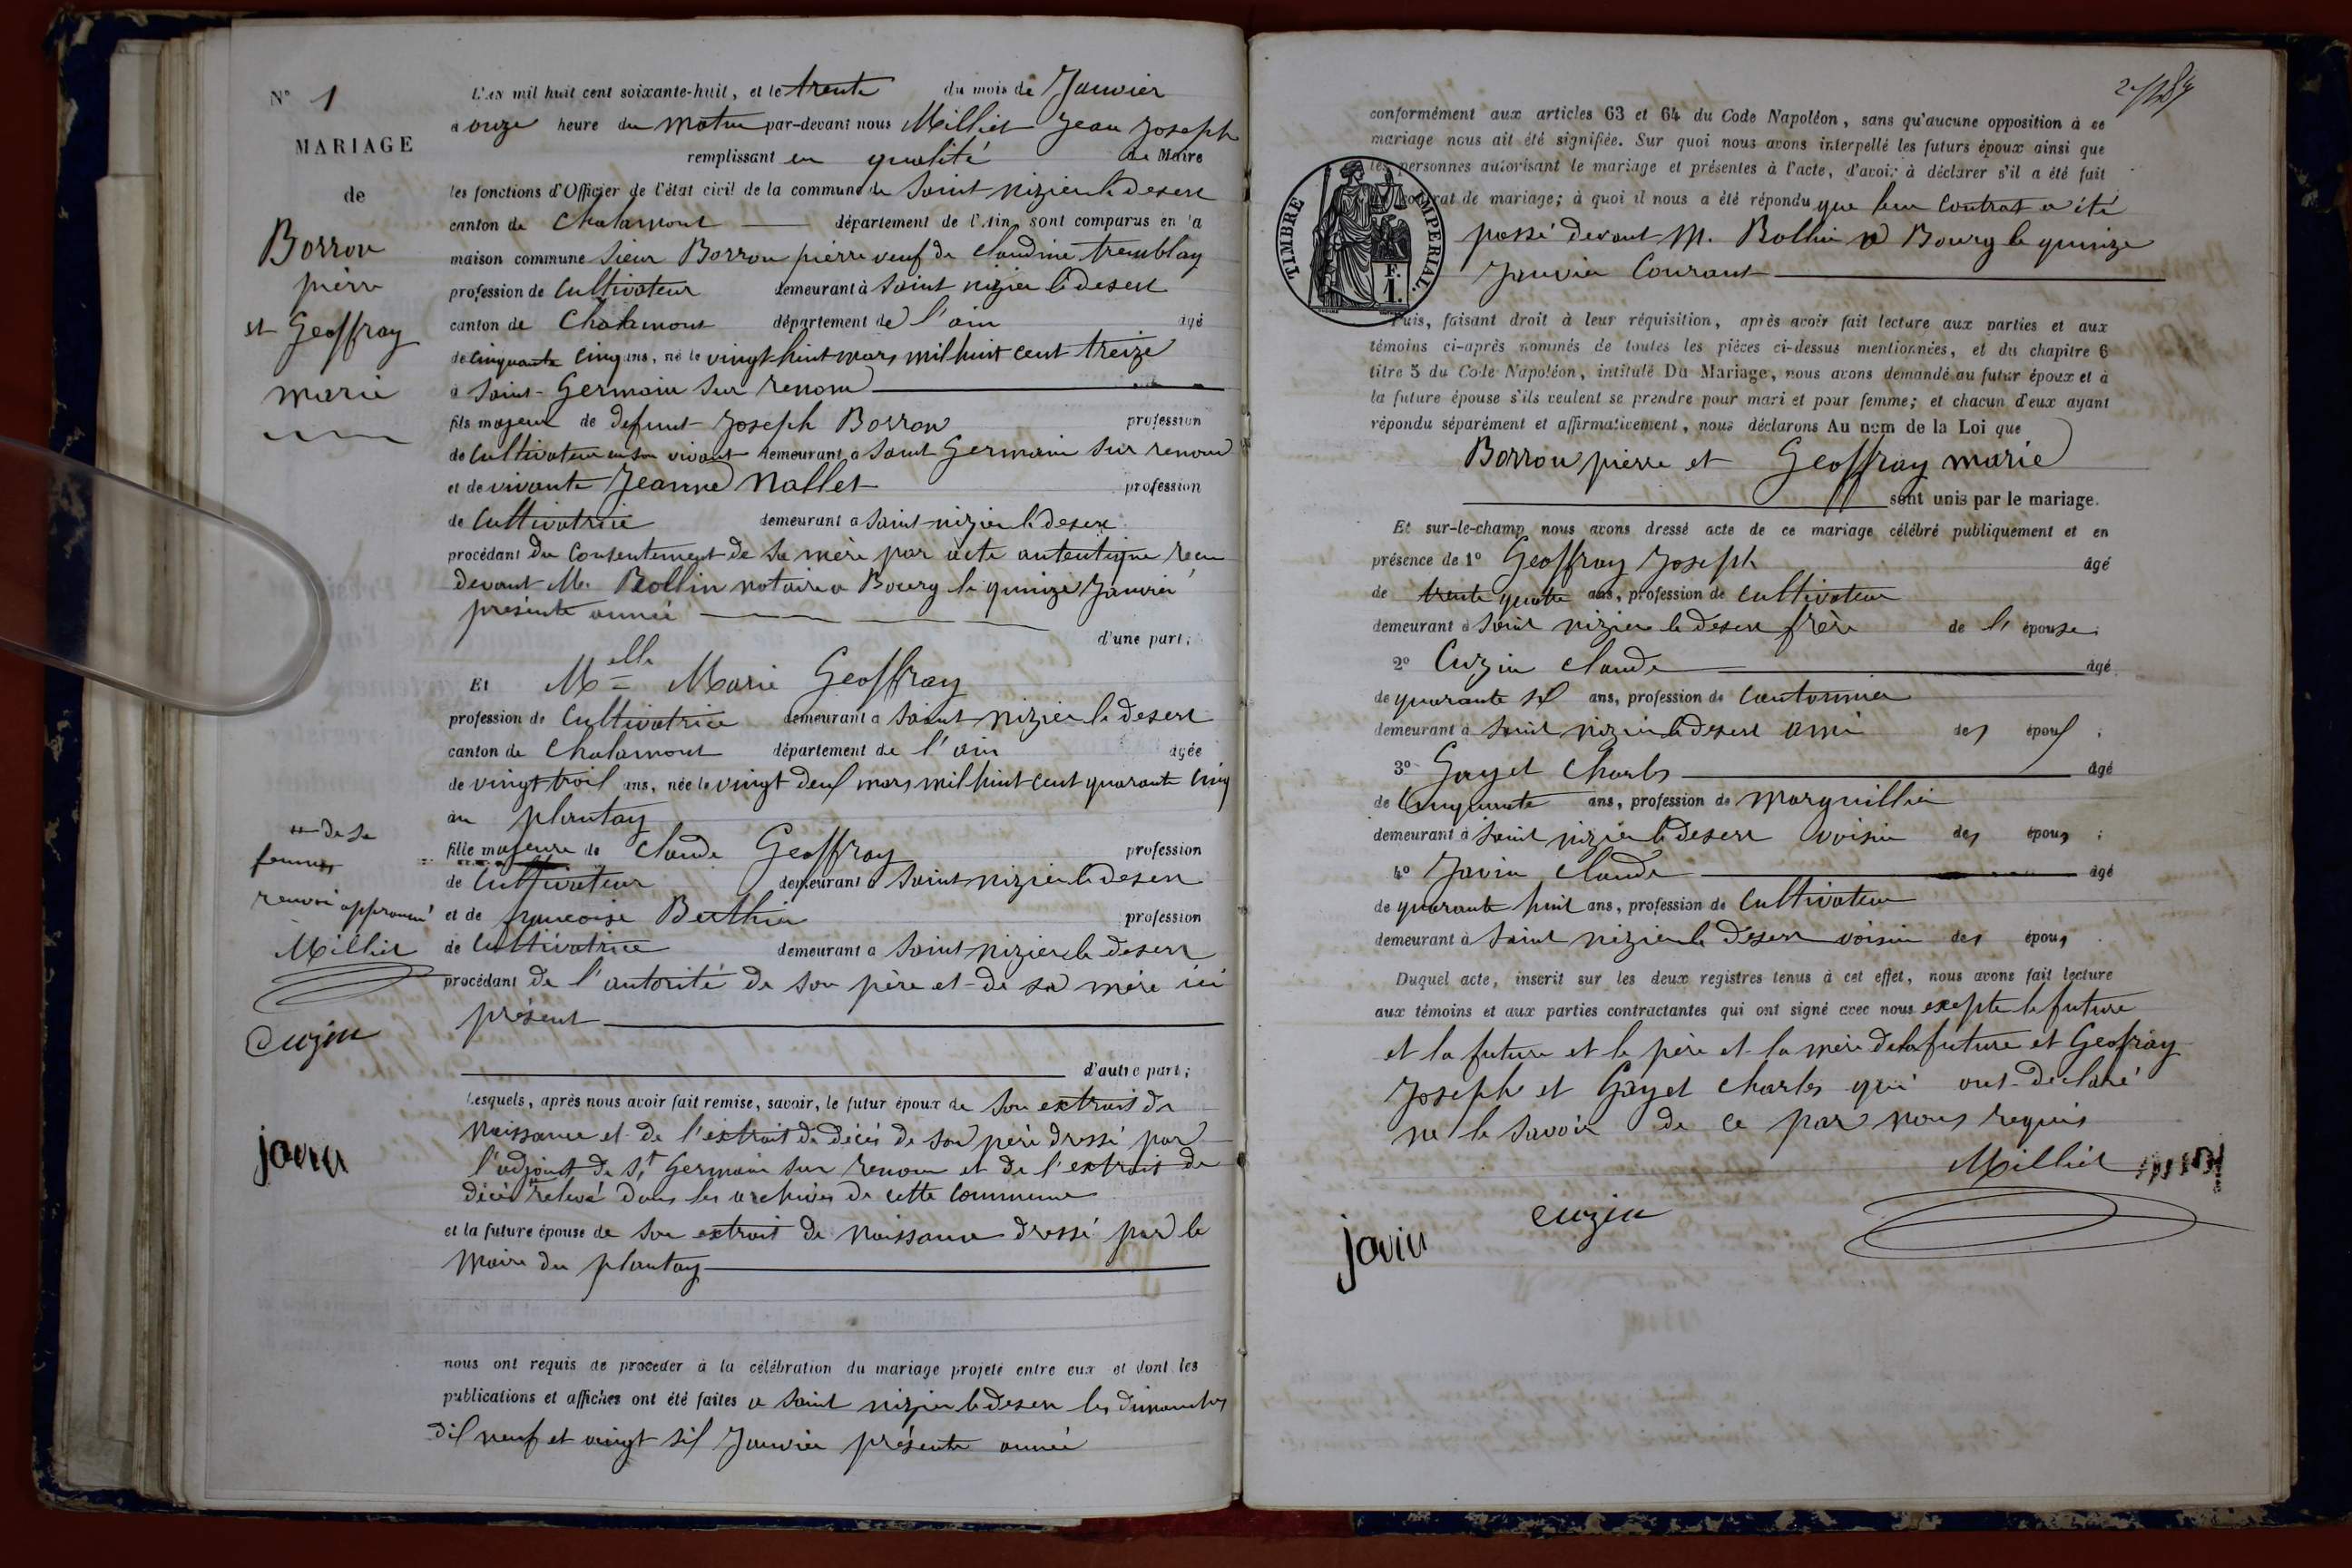 N° 1
MARIAGE
de
Borron
pierre
et Geoffray
marie
L'AN mil huit cent soixante-huit, et le trente du mois de Janvier
a onze heure du matin par-devant nous Milliet Jean Joseph
remplissant en qualité de Maire
les fonctions d'Officier de l'état civil de la commune de Saint nizier le desert
canton de Chalamont département de l'Ain, sont comparus en la
maison commune sieur Borron pierre veuf de Claudine tremblay
profession de Cultivateur demeurant à Saint nizier le desert
canton de Chalamont département de l'ain âgé
de Cinquante Cinq ans, né le vingt huit mars mil huit cent treize
à Saint-Germain sur renom
fils majeur de defunt Joseph Borron profession
de Cultivateur en son vivant demeurant à Saint Germain sur renom
et de vivante Jeanne Nallet profession
de Cultivatrice demeurant à Saint nizier le desert
procédant du Consentement de sa mère par acte autentique recu
devant Me. Bollin notaire a Bourg le quinze Janvier
présente année
d'une part;
Et Melle Marie Geoffray
profession de Cultivatrice demeurant à Saint nizier le desert
canton de Chalamont département de l'ain âgée
de vingt trois ans, née le vingt deux mars mil huit cent quarante Cinq
au plantay
fille majeure de Claude Geoffray profession
de Cultivateur demeurant à Saint nizier le desert
et de francoise Berthier profession
de Cultivatrice demeurant à Saint nizier le desert
procédant de l'autorité de son père et de sa mère ici
présent
d'autre part;
Lesquels, après nous avoir fait remise, savoir, le futur époux de Son extrait de
Naissance et de l'extrait de décès de son père dressé par
l'adjoint de St Germain sur renom et de l'extrait de
décès relevé dans les archives de cette Commune
et la future épouse de Son extrait de Naissance dressé par le
Maire du plantay
nous ont requis de procéder à la célébration du mariage projeté entre eux et dont les
publications et affiches ont été faites a Saint nizier le desert les dimanches
dix neuf et vingt six Janvier présente année
de sa
femme
renvoi approuvé
Milliet
Cuzin
javin
conformément aux articles 63 et 64 du Code Napoléon, sans qu'aucune opposition à ce
mariage nous ait été signifiée. Sur quoi nous avons interpellé les futurs époux ainsi que
les personnes autorisant le mariage et présentes à l'acte, d'avoir à déclarer s'il a été fait
contrat de mariage; à quoi il nous a été répondu que leur Contrat a été
passé devant M. Bollin a Bourg le quinze
Janvier Courant
TIMBRE IMPERIAL.
F.
1.
Puis, faisant droit à leur réquisition, après avoir fait lecture aux parties et aux
témoins ci-après nommés de toutes les pièces ci-dessus mentionnées, et du chapitre 6
titre 5 du Code Napoléon, intitulé Du Mariage, nous avons demandé au futur époux et à
la future épouse s'ils veulent se prendre pour mari et pour femme; et chacun d'eux ayant
répondu séparément et affirmativement, nous déclarons Au nom de la Loi que
Borron pierre et Geoffray marie
sont unis par le mariage.
Et sur-le-champ nous avons dressé acte de ce mariage célébré publiquement et en
présence de 1° Geoffray Joseph âgé
de trente quatre ans, profession de Cultivateur
demeurant à Saint nizier le desert frère de l'épouse;
2° Cuzin Claude âgé
de quarante six ans, profession de Cantonnier
demeurant à Saint nizier le desert ami des époux;
3° Gayet Charles âgé
de Cinquante ans, profession de marguillier
demeurant à Saint nizier le desert voisin des époux;
4° Javin Claude âgé
de quarante huit ans, profession de Cultivateur
demeurant à Saint nizier le desert voisin des époux.
Duquel acte, inscrit sur les deux registres tenus à cet effet, nous avons fait lecture
aux témoins et aux parties contractantes qui ont signé avec nous exepte le future
et la future et le père et la mère de la future et Geofray
Joseph et Gayet Charles qui ont déclaré
ne le savoir de ce par nous requis
Milliet
Cuzin
javin